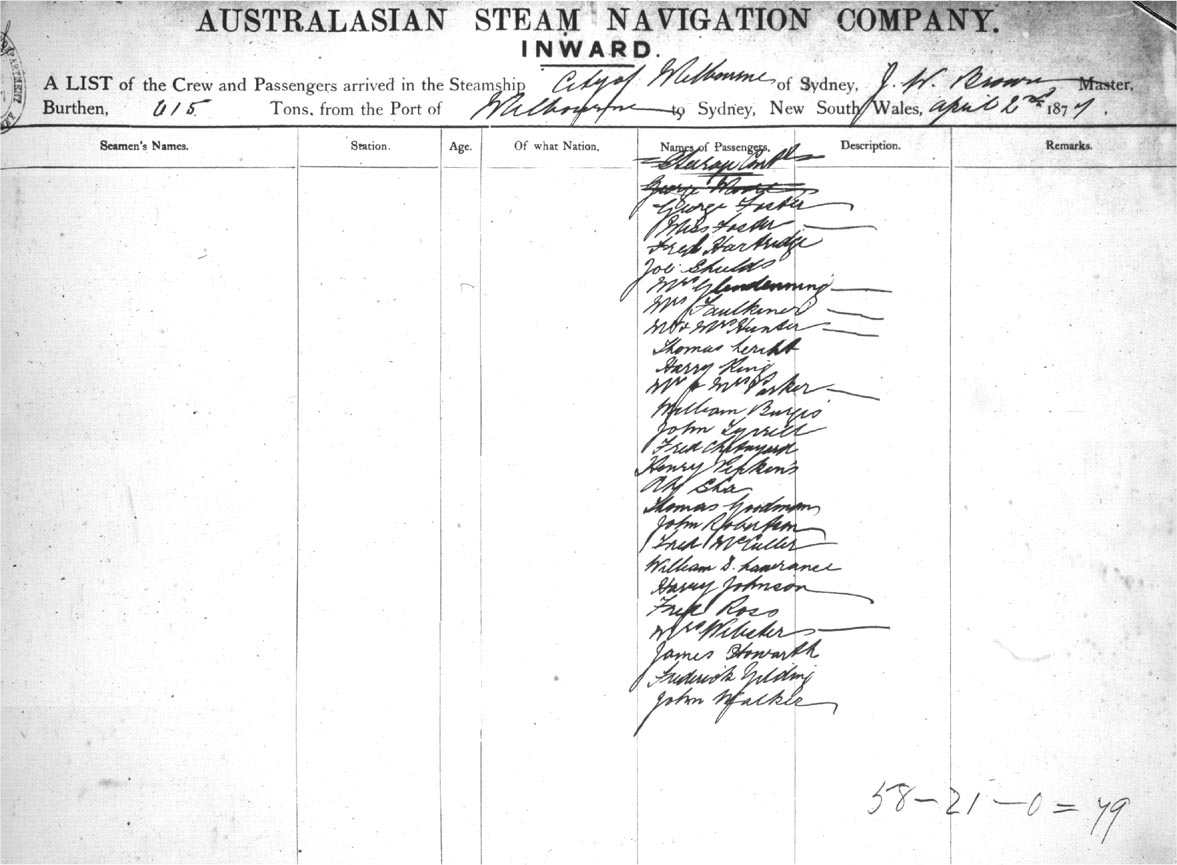 AUSTRALASIAN STEAM NAVIGATION COMPANY.
INWARD.
A LIST of the Crew and Passengers arrived in the Steamship City of Melbourne of Sydney, J. W. Brown Master,
Burthen, 615 Tons, from the Port of Melbourne to Sydney, New South Wales, April 2nd 1877.
Seamen's Names. Station. Age. Of what Nation. Names of Passengers. Description. Remarks.
Steerage Contd
George Moore
George Foster
Miss Foster
Fred Hartridge
Joe Shields
Mrs Glendenning
Mrs Faulkiner
Mr & Mrs Hunter
Thomas
Harry King
Mr & Mrs Parker
William Burgis
John Tyrrell
Fred
Henry Pipkins
Ah Sha
Thomas Goodman
John Robertson
Fred McCuller
William S. Lawrance
Harry Johnson
Fred Ross
Mrs Webster
James Howarth
Frederick Gilding
John Walker
58-21-0=79